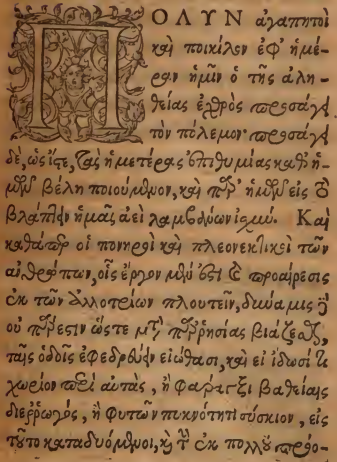 ΠΟΛΥΝ ἀγαπητοὶ
καὶ ποικίλον ἐφ' ἡμέ-
ραν ἡμῖν ὁ τῆς ἀλη-
θείας ἐχθρὸς προσάγει
τὸν πόλεμον· προσάγει
δὲ, ὡς ἴστε, τὰς ἡμετέρας ἐπιθυμίας καθ' ἡ-
μῶν βέλη ποιούμενον, καὶ παρ' ἡμῶν εἰς τὸ
βλάπτειν ἡμᾶς ἀεὶ λαμβάνων ἰσχύν. Καὶ
καθάπερ οἱ πονηροὶ καὶ πλεονεκτικοὶ τῶν
ἀνθρώπων, οἷς ἔργον μέν ἐστι καὶ προαίρεσις
ἐκ τῶν ἀλλοτρίων πλουτεῖν, δύναμις δὲ
οὐ πάρεστιν ὥστε μετὰ παρρησίας βιάζεσθαι,
ταῖς ὁδοῖς ἐφεδρεύειν εἰώθασι, καὶ εἰ ἴδωσί τι
χωρίον περὶ αὐτὰς, ἢ φάραγξι βαθείαις
διερρωγὸς, ἢ φυτῶν πυκνότητι σύσκιον, εἰς
τοῦτο καταδυόμενοι, καὶ τὴν ἐκ πολλοῦ προο-